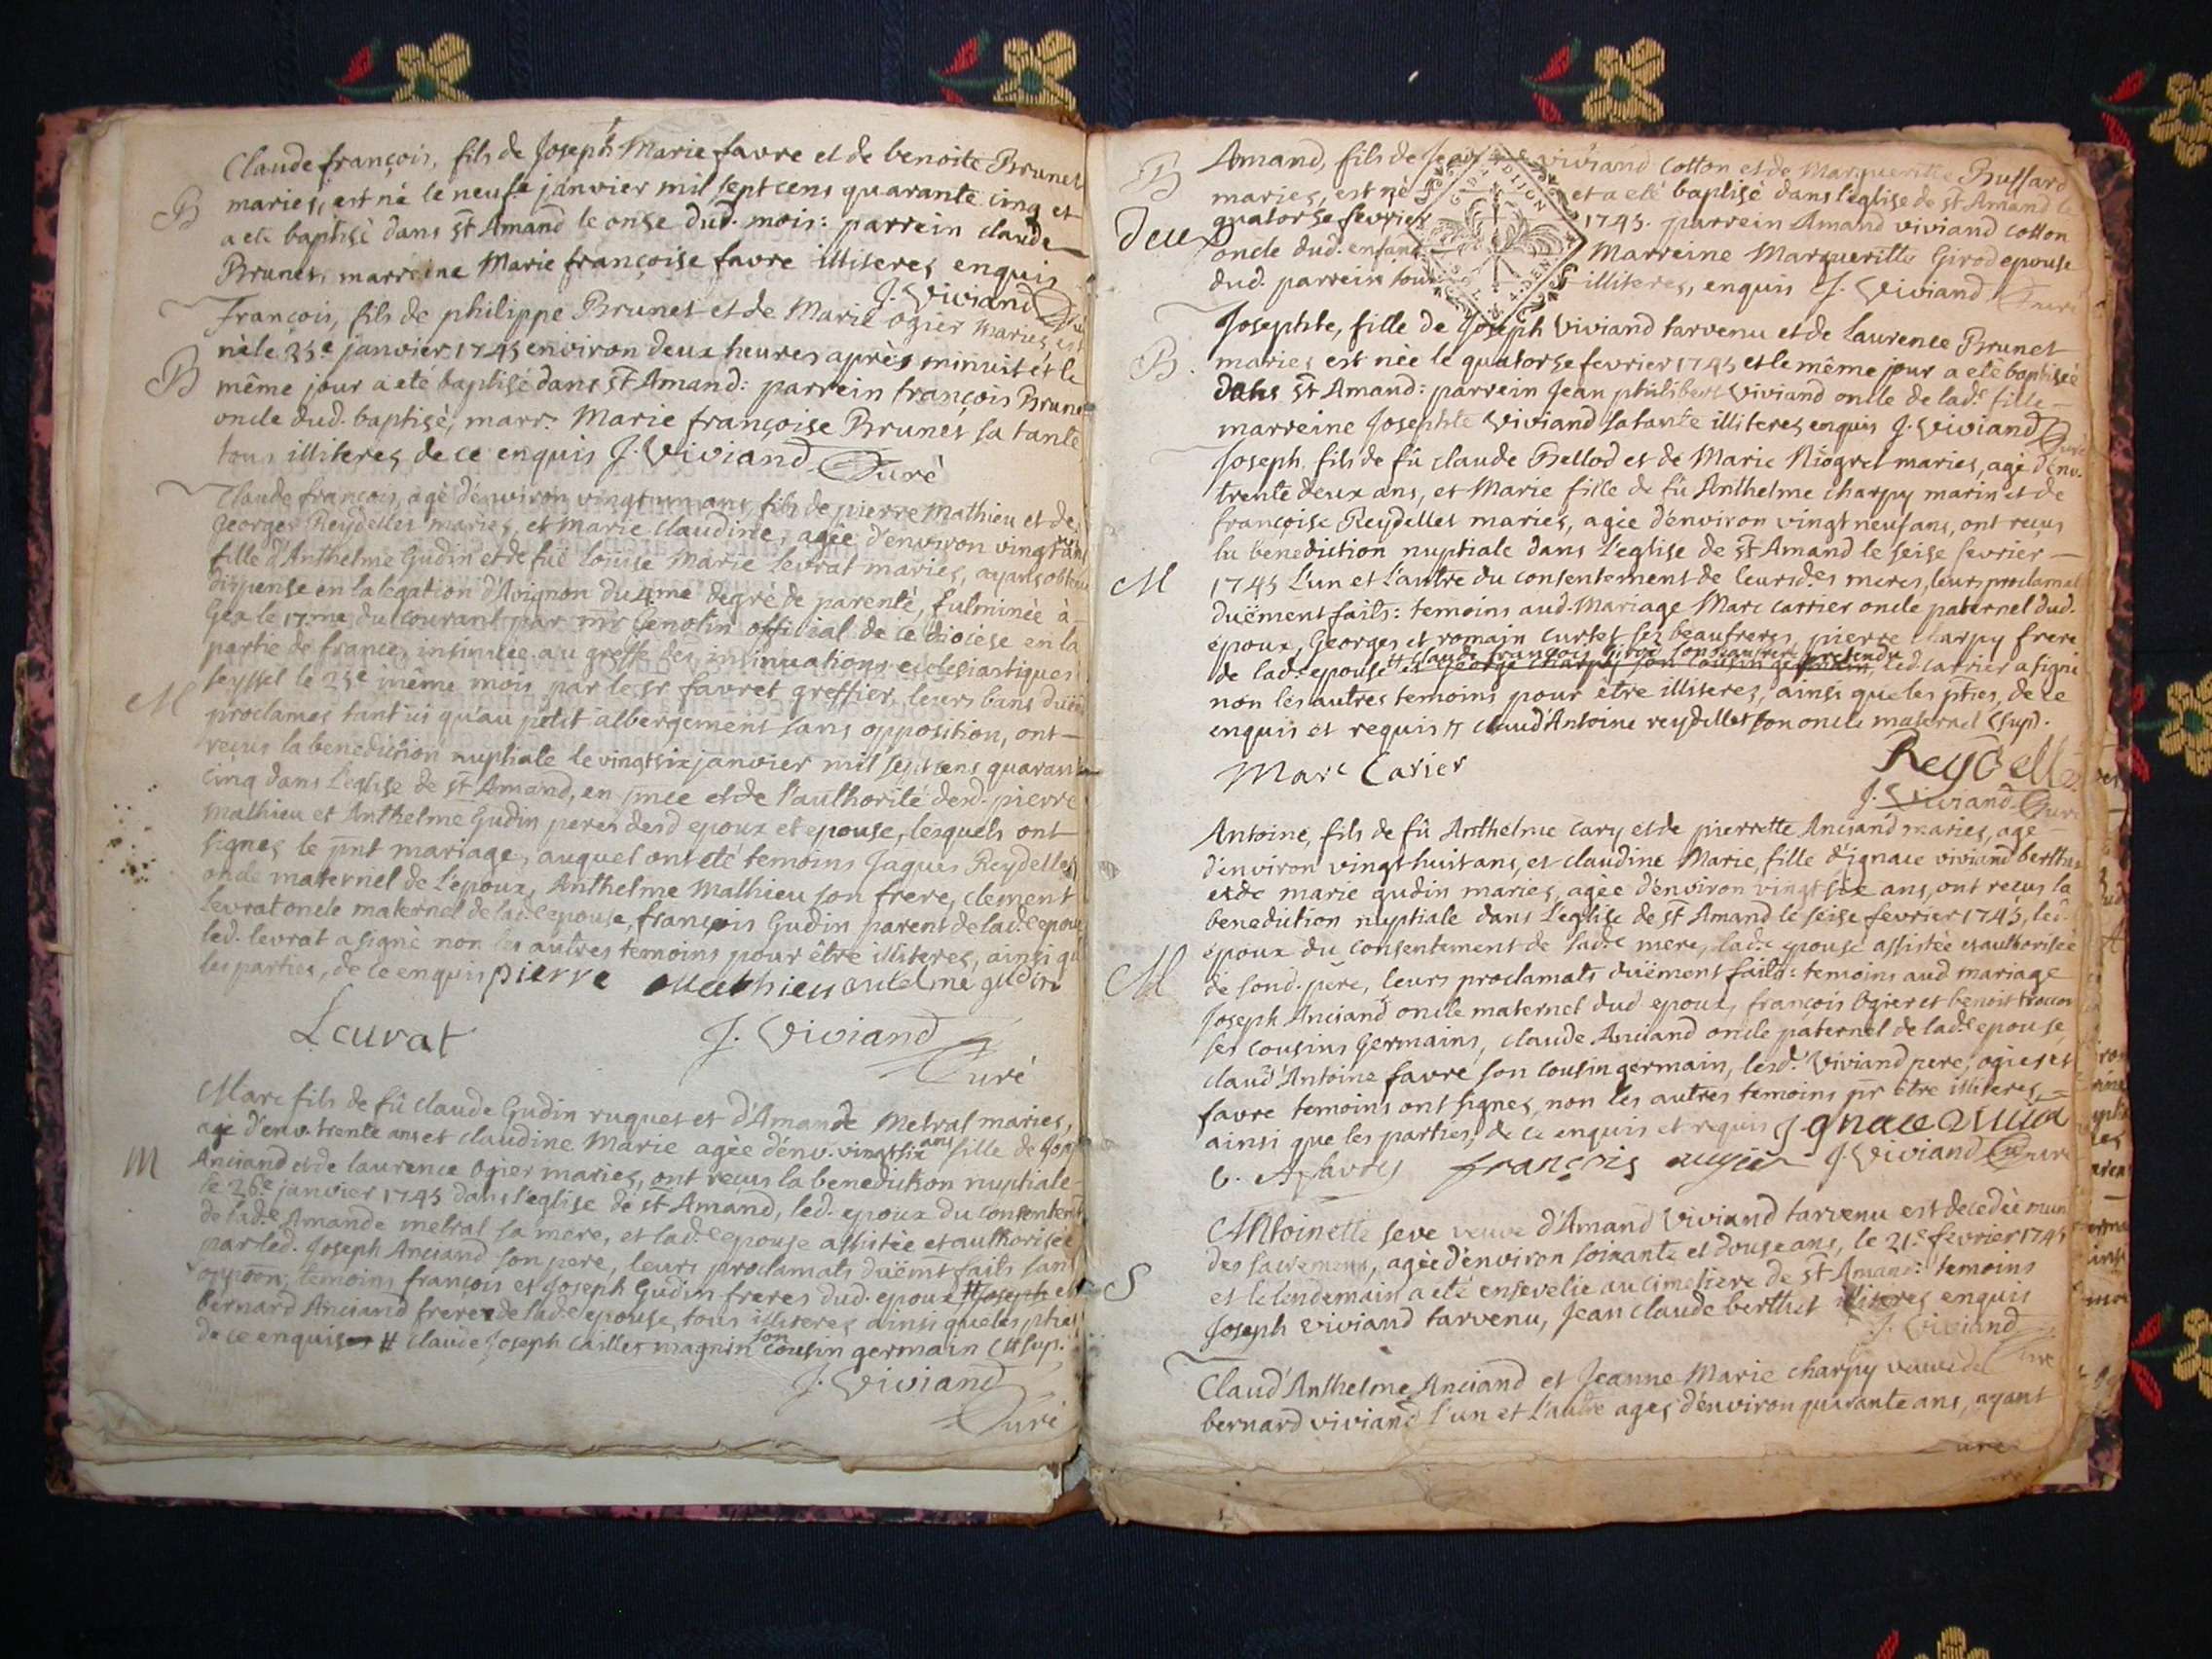 Claude françois, fils de Joseph Marie favre et de benoite Brunet
mariés, est né le neufe janvier mil sept cens quarante cinq et
B
a eté baptisé dans st Amand le onse dud. mois: parrein claude
Brunet, marreine Marie françoise favre illiteres enquis
J. Viviand Curé
François, fils de philippe Brunet et de Marie ogier mariés, est
né le 25e janvier 1745 environ deux heures après minuit et le
B
même jour a eté baptisé dans st Amand: parrein françois Brunet
oncle dud. baptisé, marr. Marie françoise Brunet sa tante
tous illiteres de ce enquis J. Viviand Curé
Claude françois, agé d'environ vingt un ans, fils de pierre Mathieu et de
George Reydellet mariés, et marie claudine, agée d'environ vingt ans
fille d'Anthelme Gudin et de fuë Louise Marie levrat mariés, ayans obtenu
dispense en la legation d'Avignon du 4me degré de parenté, fulminée à
Gex le 17me du courant par mr official de ce diocese en la
partie de france, insinuée au greffe des insinuations ecclesiastiques
seyssel le 25e même mois par le sr favret greffier, leurs bans duëm
M
proclamés tant ici qu'au petit albergement sans opposition, ont
reçus la benediction nuptiale le vingt six janvier mil sept cens quarante
cinq dans l'eglise de st Amand, en pnce et de l'authorité desd. pierre
Mathieu et Anthelme Gudin peres desd epoux et epouse, lesquels ont
signés le pnt mariage, auquel ont eté temoins Jaques Reydellet
oncle maternel de l'epoux, Anthelme Mathieu son frere, clement
levrat oncle maternel de lad.e epouse, françois Gudin parent de lad.e epouse
led. levrat a signé non les autres temoins pour être illiteres, ainsi que
les parties, de ce enquis pierre Mathieu antelme gudin
Leuvat J. Viviand
Curé
Marc fils de fû claude Gudin ruques et d'Amande Metral mariés,
agé d'env. trente ans et claudine Marie agée d'env. vingt six ans fille de Jos
M
Anciand et de laurence Ogier mariés, ont reçus la benediction nuptiale
le 26e janvier 1745 dans l'eglise de st Amand, led. epoux du consentent
de lad.e Amande metral sa mere, et lad.e epouse assistée et authorisée
par led. Joseph Anciand son pere, leurs proclamats duëmt faits sans
oppoon, temoins françois et Joseph Gudin freres dud. epoux # Joseph et
bernard Anciand frere de lad.e epouse, tous illiteres ainsi que les pties
de ce enquis # claude Joseph cailler magnin son cousin germain (# sup.
J. Viviand
Curé
B
Amand, fils de Jean viviand cotton et de Marguerite Bussard
mariés, est né et a eté baptisé dans l'eglise de st Amand le
deux
quatorse fevrier 1745. parrein Amand viviand cotton
oncle dud. enfant Marreine Marguerite Girod epouse
dud. parrein tous illiteres, enquis J. Viviand Curé
G DE DIJON
Josephte, fille de Joseph Viviand tarvenu et de laurence Brunet
B.
mariés est née le quatorse fevrier 1745 et le même jour a eté baptisée
dans st Amand: parrein Jean philibert Viviand oncle de lad.e fille
marreine Josephte Viviand sa tante illiteres enquis J. Viviand Curé
Joseph, fils de fû claude Bellod et de Marie Niogret mariés, agé d'env.
trente deux ans, et Marie fille de fû Anthelme charpy marin et de
françoise Reydellet mariés, agée d'environ vingt neuf ans, ont reçus
la benediction nuptiale dans l'eglise de st Amand le seise fevrier
M
1745 l'un et l'autre du consentement de leursd.es meres, leurs proclamats
duëment faits: temoins aud. Mariage Marc carrier oncle paternel dud.
époux, Georges et romain curtet ses beaufreres, pierre charpy frere
claude françois Girod son beaufrere pretendu
de lad.e epouse et George charpy son cousin germain, led. carrier a signé
non les autres temoins pour être illiteres, ainsi que les pties, de ce
enquis et requis # claud'Antoine reydellet son oncle maternel (sup.
Marc Carier Reydellet
J. Viviand Curé
Antoine, fils de fû Anthelme cary et de pierrette Anciand mariés, agé
d'environ vingt huit ans, et claudine Marie, fille d'ignace viviand berthet
et de marie gudin mariés, agée d'environ vingt six ans, ont reçus la
benediction nuptiale dans l'eglise de st Amand le seise fevrier 1745, led.
époux du consentement de sad.e mere, lad.e epouse assistée et authorisée
M
de sond. pere, leurs proclamats duëment faits: temoins aud mariage
Joseph Anciand oncle maternel dud epoux, françois Ogier et benoit troccon
ses cousins Germains, claude Anciand oncle paternel de lad.e epouse,
claud'Antoine favre son cousin germain, lesd. Viviand pere, ogier et
favre temoins ont signés, non les autres temoins pr être illiteres,
ainsi que les parties, de ce enquis et requis Ignace
C. A favres françois J. Viviand Curé
Anthoinette seve veuve d'Amand Viviand tarvenu est decedée munie
des sacremens, agée d'environ soixante et douse ans, le 21e fevrier 1745
S
et le lendemain a eté ensevelie au cimetiere de st Amand: temoins
Joseph viviand tarvenu, Jean claude berthet illiteres enquis
J. Viviand
Curé
Claud'Anthelme Anciand et Jeanne Marie charpy veuve de
bernard viviand l'un et l'autre agés d'environ quarante ans, ayant